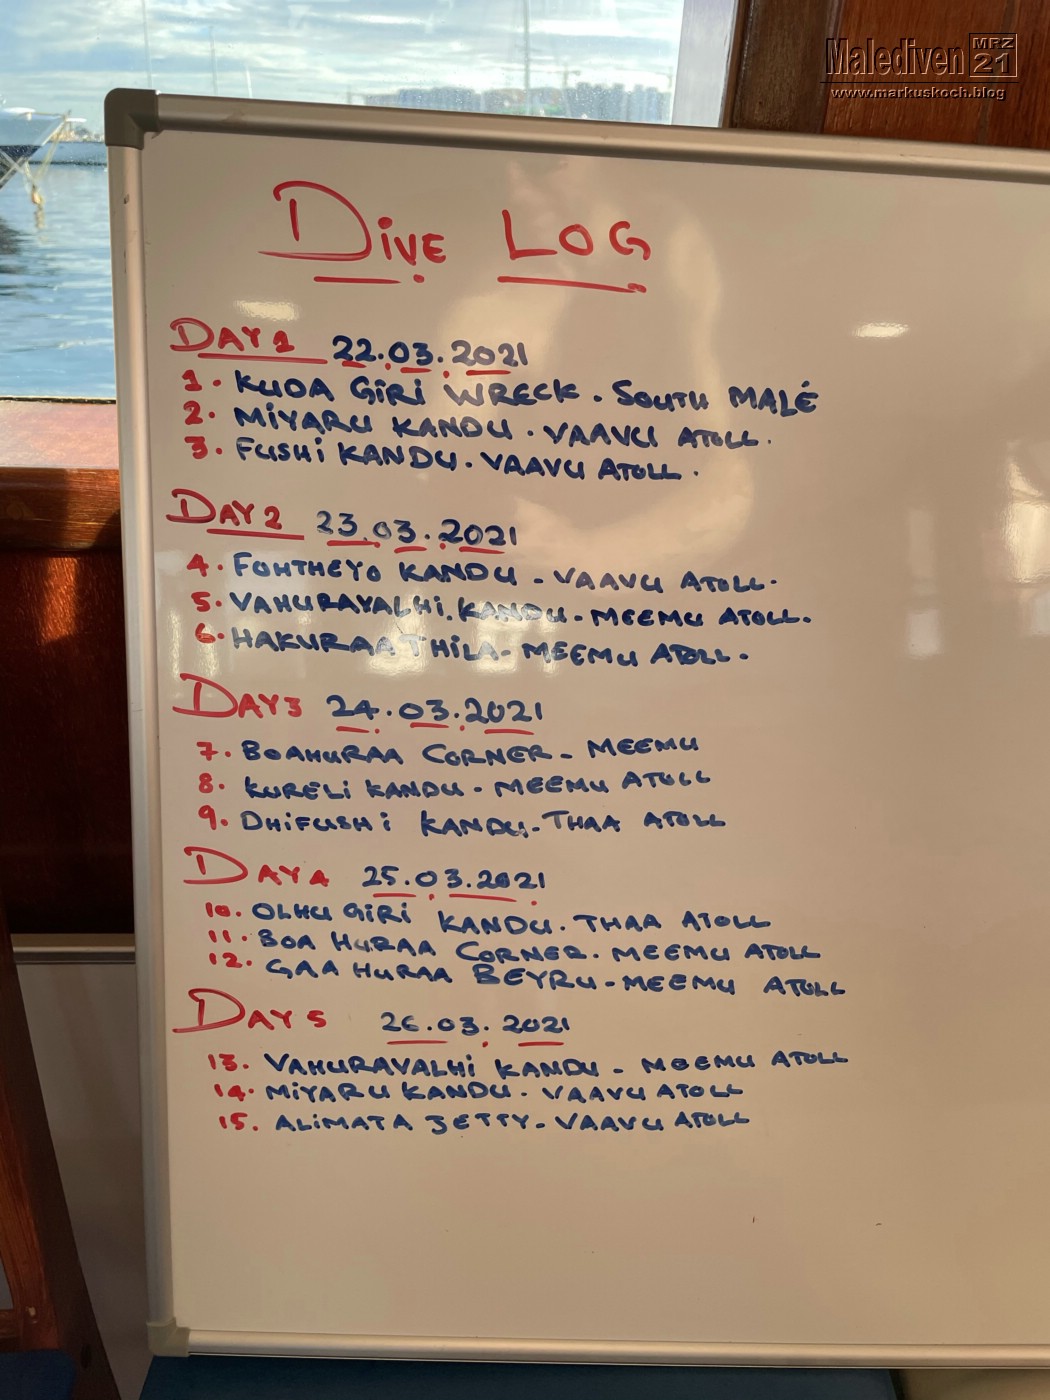 Malediven MRZ 21
www.markuskoch.blog
DIVE LOG
DAY 1 22.03.2021
1. KUDA GIRI WRECK. SOUTH MALÉ
2. MIYARU KANDU. VAAVU ATOLL.
3. FUSHI KANDU. VAAVU ATOLL.
DAY 2 23.03.2021
4. FOHTHEYO KANDU - VAAVU ATOLL.
5. VAHURAVALHI. KANDU - MEEMU ATOLL.
6. HAKURAA THILA - MEEMU ATOLL.
DAY 3 24.03.2021
7. BOAHURAA CORNER - MEEMU
8. KURELI KANDU - MEEMU ATOLL
9. DHIFUSHI KANDU - THAA ATOLL
DAY 4 25.03.2021
10. OLHU GIRI KANDU. THAA ATOLL
11. BOA HURAA CORNER. MEEMU ATOLL
12. GAA HURAA BEYRU - MEEMU ATOLL
DAY 5 26.03.2021
13. VAHURAVALHI KANDU - MEEMU ATOLL
14. MIYARU KANDU. VAAVU ATOLL
15. ALIMATA JETTY - VAAVU ATOLL